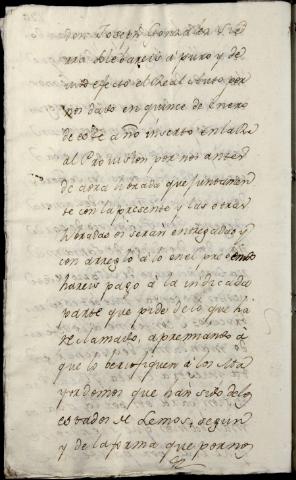 don Joseph Gonzales y se
ura llebareis a puro y de
vido efecto el Real Auto por
nos dado en quince de enero
de este año inserto en la Re
al Provision por nos antes
de aora librada que juntamen
te con la presente y las otras
libradas os seran entregadas y
con arreglo a lo en el probeido
hareis pago a la indicada
parte que pide de lo que ha
reclamado, apremiando a
que lo berifiquen a los Ma
yordomos que han sido de los
estados de Lemos, segun
y de la forma que por nos